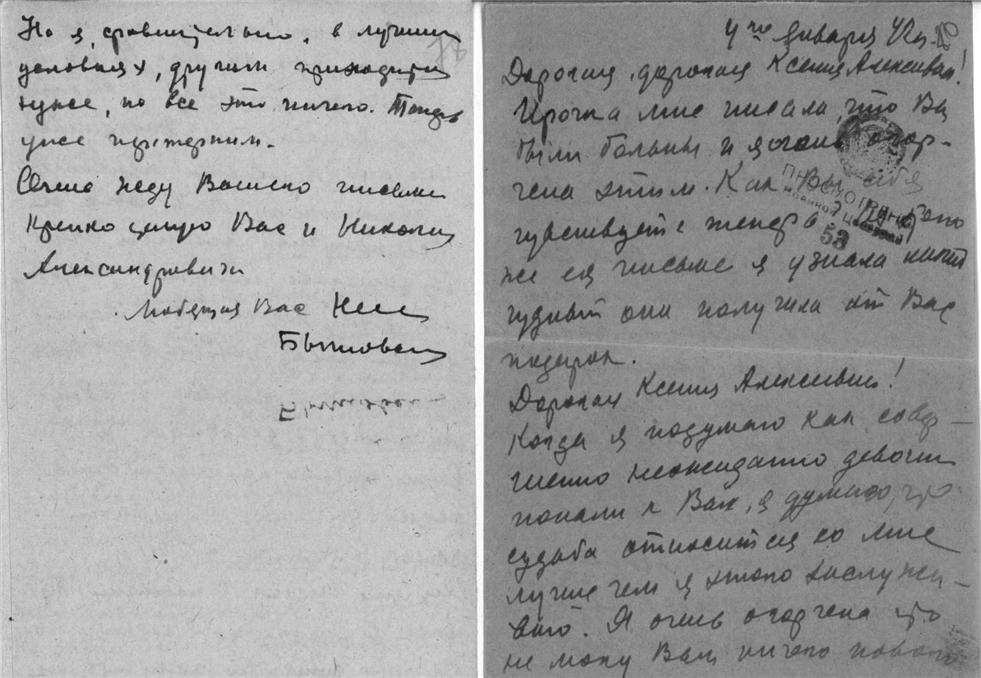 Но я, сравнительно, в лучших
условиях, другим приходится
хуже, но все это ничего. Теперь
уже перетерпим.
Очень жду Вашего письма
Крепко целую Вас и Николая
Александровича
Любящая Вас
4го января 42г.
Дорогая, дорогая Ксения Алексеевна!
Ирочка мне писала, что Вы
были больны и я очень огор-
чена этим. Как Вы себя
чувствуете теперь?
же ея письма я узнала какой
чудный она получила от Вас
подарок.
Дорогая Ксения Алексеевна!
Когда я подумаю как совер-
шенно неожиданно девочки
попали к Вам, я думаю, что
судьба относится ко мне
лучше чем я этого заслужи-
ваю. Я очень огорчена что
не могу Вам ничего нового
53